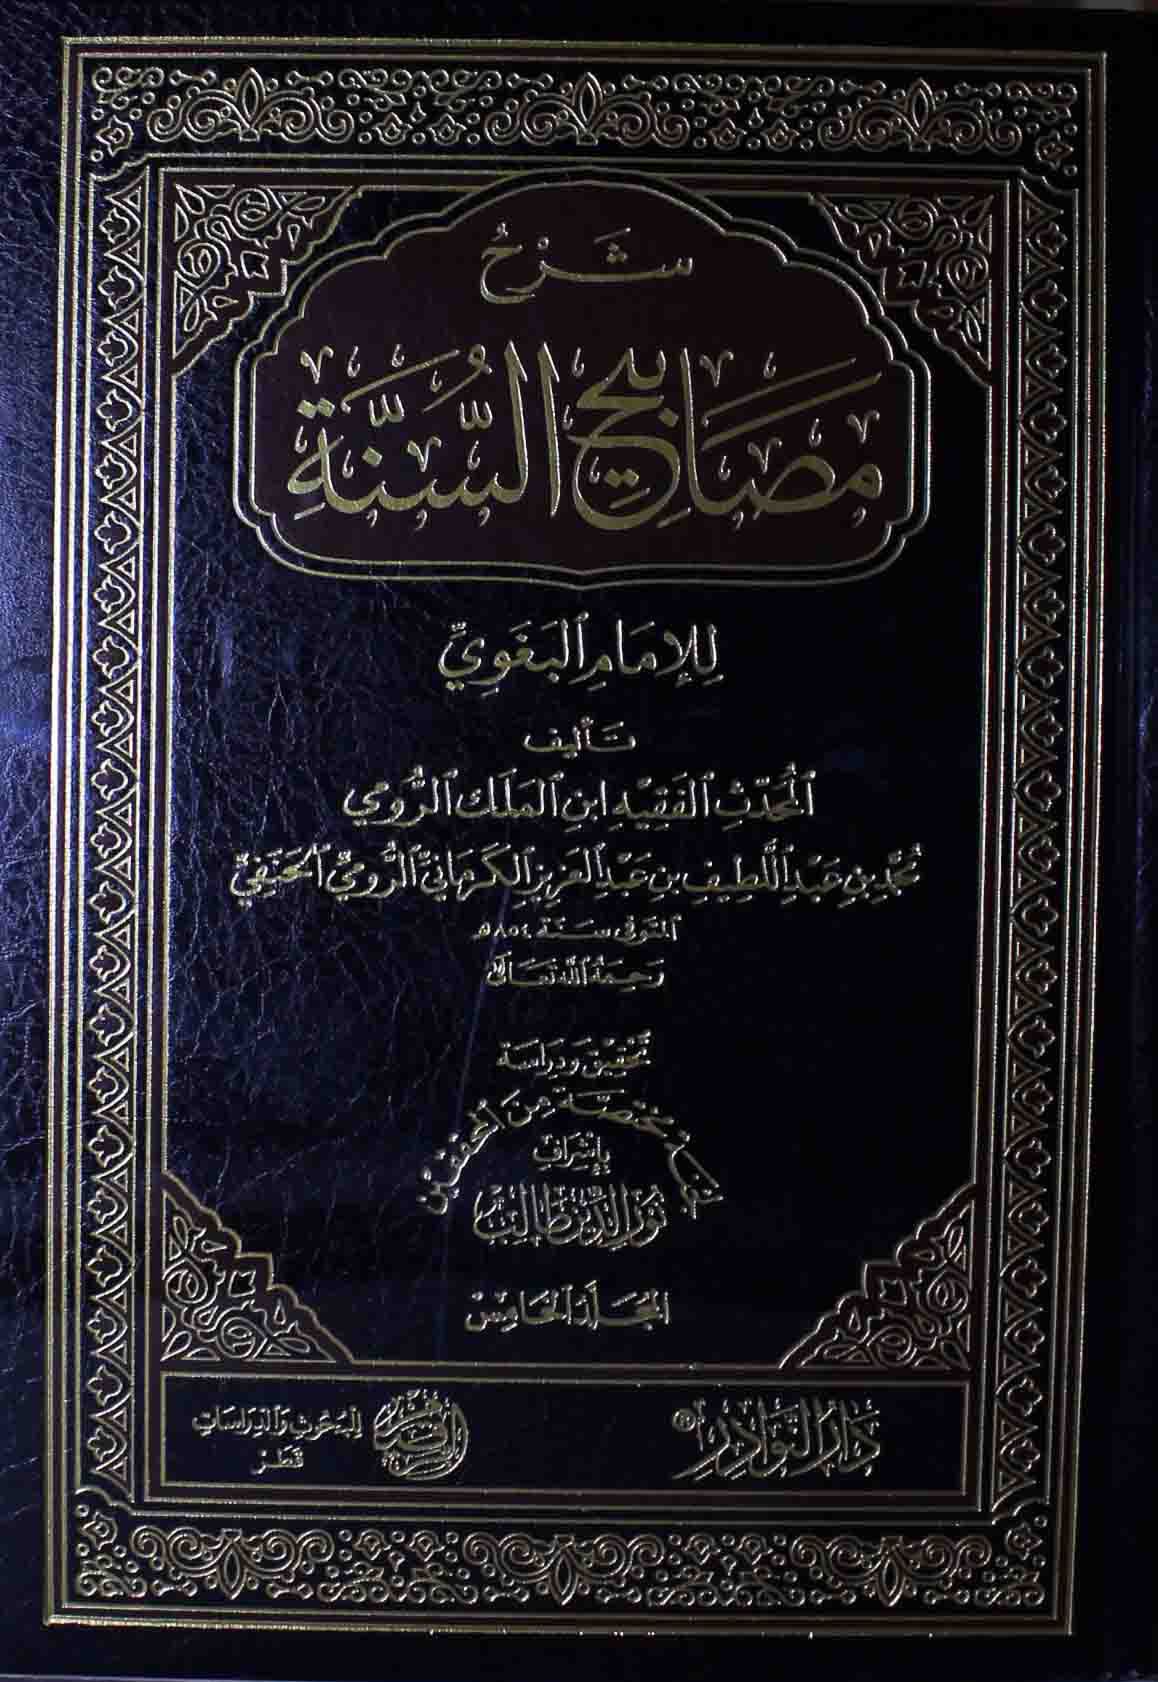 شَرْحُ
مَصَابِيحِ السُّنَّةِ
لِلإِمَامِ البَغَوِيِّ
تَأليف
المُحَدِّثِ الفَقِيهِ ابنِ المَلَك الرُّومي
مُحمَّدِ بنِ عَبْدِ اللَّطِيفِ بنِ عَبْدِ العَزِيزِ الكَرمَانيِّ الرُّوميِّ الحَنَفيِّ
المتوفى سَنَة ٨٥٤هـ
رَحِمَهُ اللهُ تَعَالَى
تحقيق وَدرَاسَة
لجنة مختصة مِنَ المحققين
بإِشرَافِ
نُورُ الدِّين طَالِب
المُجَلَّدُ الخَامِسُ
دَارُ النَّوَادِرِ
البحُوث وَالدِّراسَات
قَطَر